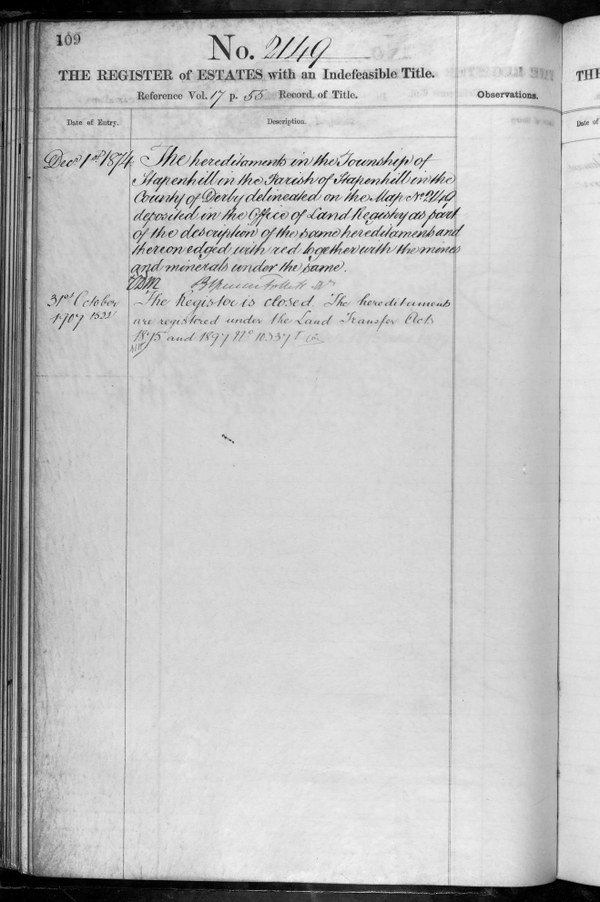 109
No. 2149
THE REGISTER of ESTATES with an Indefeasible Title.
Reference Vol. 17 p. 55 Record of Title.
Observations.
Date of Entry.
Description.
Decr 1st 1874
The hereditaments in the Township of
Stapenhill in the Parish of Stapenhill in the
County of Derby delineated on the Map No 2149
deposited in the Office of Land Registry as part
of the description of the same hereditaments and
thereon edged with red together with the mines
and minerals under the same.
31st October
1907
The Register is closed. The hereditaments
are registered under the Land Transfer Acts
1875 and 1897 No 103397
THE
Date of